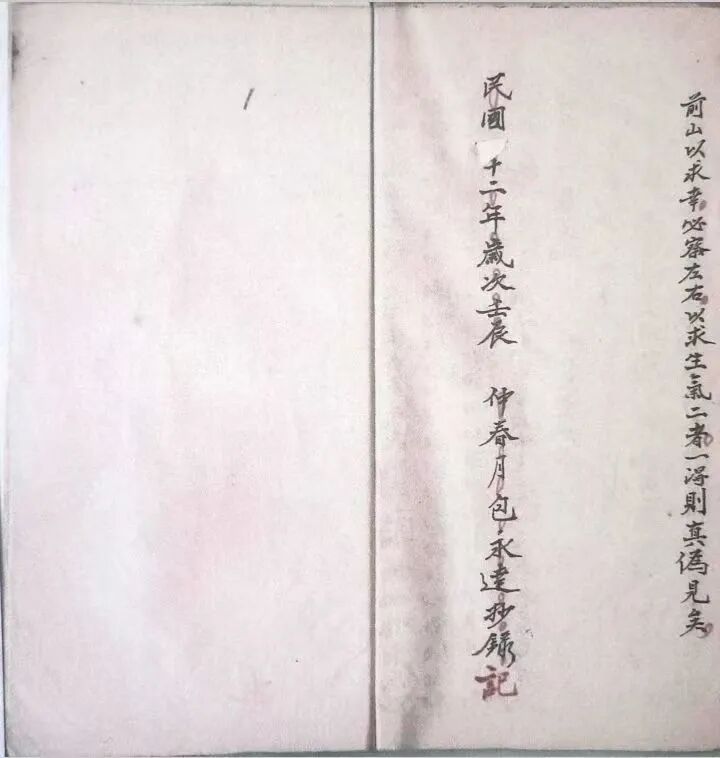 前山以求幸必察左右以求生氣二者一得則真偽見矣
民國 十二年歲次壬辰 仲春月包永達抄錄記